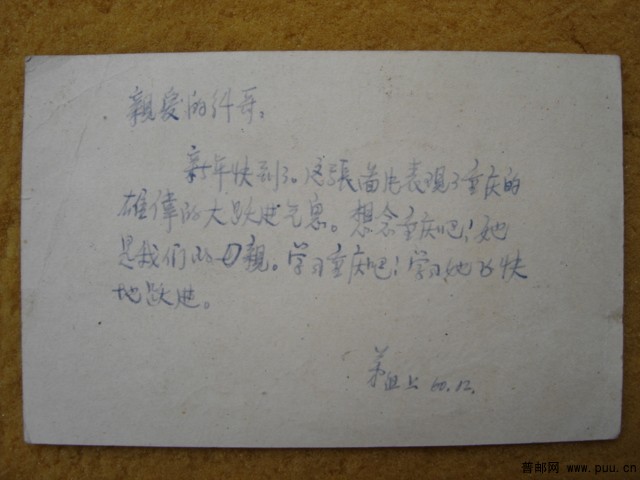 親爱的纠哥:
新年快到了。这張画片表现了重庆的
雄偉的大跃进气息。想念重庆吧!她
是我们的母親。学习重庆吧!学习她的快
地跃进。
上 60.12.
普邮网 www.puu.cn